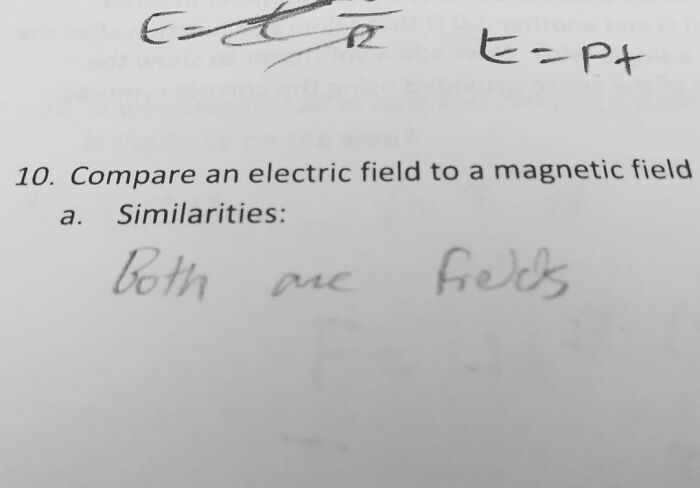 E = Pt
10. Compare an electric field to a magnetic field
a. Similarities:
Both are fields